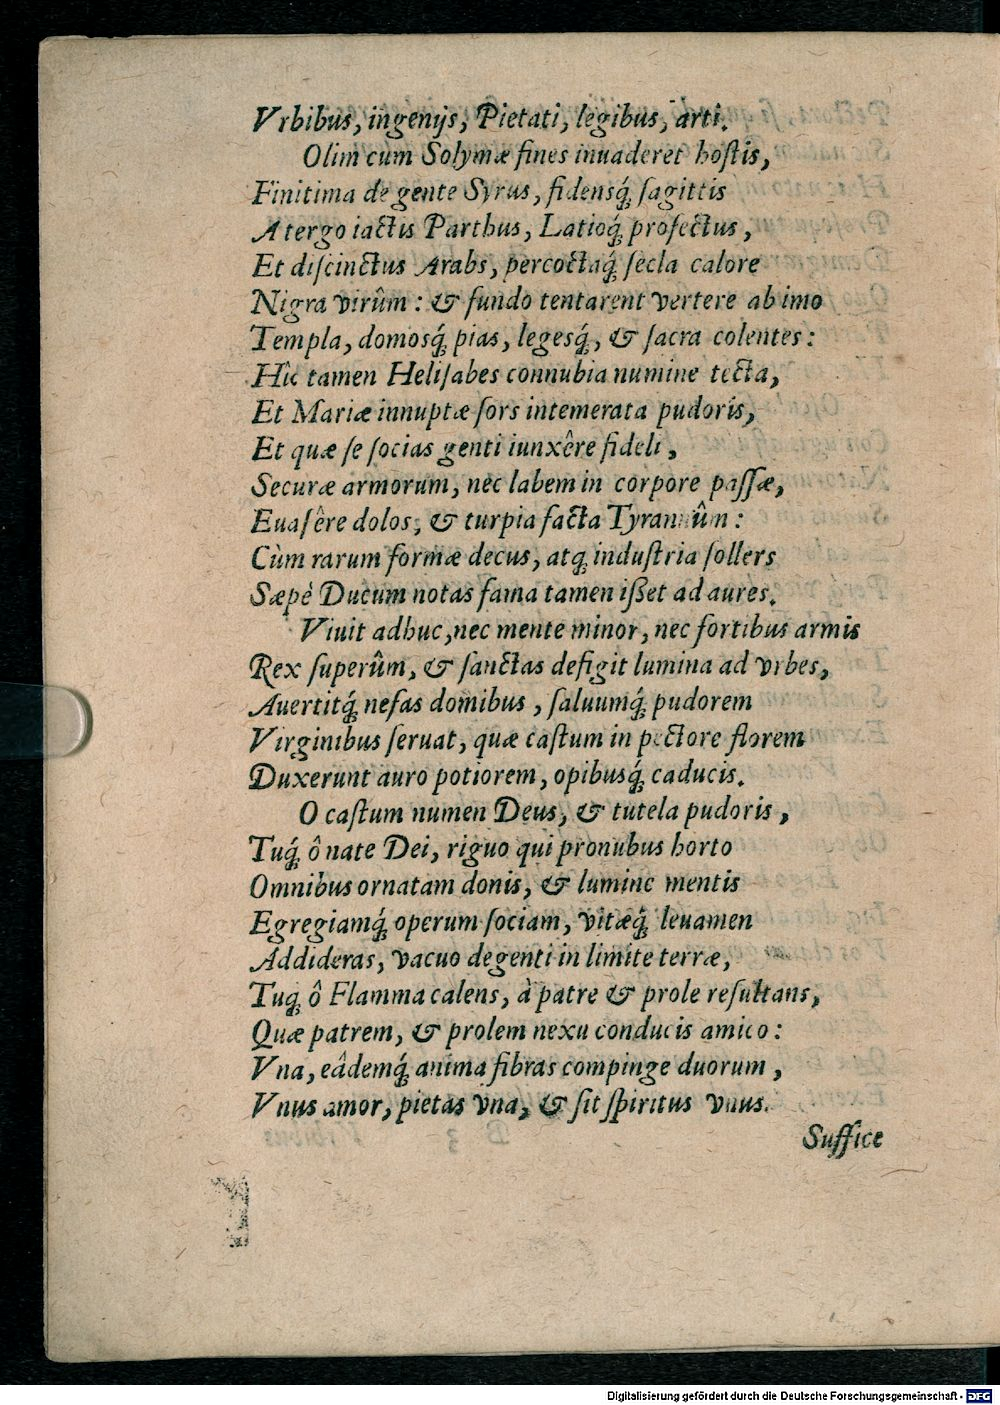 Vrbibus, ingenijs, Pietati, legibus, arti.
Olim cum Solymæ fines inuaderet hoſtis,
Finitima de gente Syrus, fidensq́ꝫ ſagittis
A tergo iactis Parthus, Latioq́ꝫ profectus,
Et diſcinctus Arabs, percoctaq́ꝫ ſecla calore
Nigra virûm: & fundo tentarent vertere ab imo
Templa, domosq́ꝫ pias, legesq́ꝫ, & ſacra colentes:
Hîc tamen Heliſabes connubia numine tecta,
Et Mariæ innuptæ ſors intemerata pudoris,
Et quæ ſe ſocias genti iunxêre fideli,
Securæ armorum, nec labem in corpore paſſæ,
Euaſêre dolos, & turpia facta Tyrannûm:
Cùm rarum formæ decus, atqꝫ induſtria ſollers
Sæpè Ducum notas fama tamen ißet ad aures.
Viuit adhuc, nec mente minor, nec fortibus armis
Rex ſuperûm, & ſanctas defigit lumina ad vrbes,
Auertitq́ꝫ nefas domibus, ſaluumq́ꝫ pudorem
Virginibus ſeruat, quæ caſtum in pectore florem
Duxerunt auro potiorem, opibusq́ꝫ caducis.
O caſtum numen Deus, & tutela pudoris,
Tuq́ꝫ ô nate Dei, riguo qui pronubus horto
Omnibus ornatam donis, & lumine mentis
Egregiamq́ꝫ operum ſociam, vitæq́ꝫ leuamen
Addideras, vacuo degenti in limite terræ,
Tuqꝫ ô Flamma calens, à patre & prole reſultans,
Quæ patrem, & prolem nexu conducis amico:
Vna, eâdemq́ꝫ anima fibras compinge duorum,
Vnus amor, pietas vna, & ſit ſpiritus vnus.
Suffice
Digitalisierung gefördert durch die Deutsche Forschungsgemeinschaft - DFG